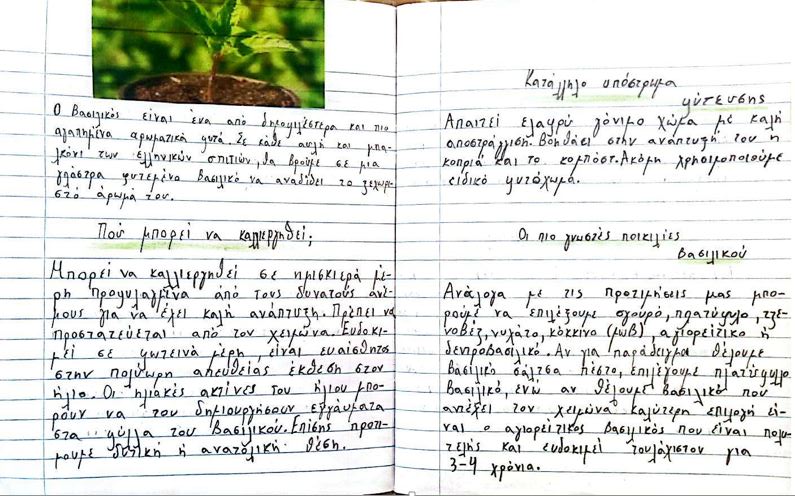 Ο Βασιλικός είναι ένα από δημοφιλέστερα και πιο
αγαπημένα αρωματικά φυτά. Σε κάθε αυλή και μπα-
λκόνι των ελληνικών σπιτιών, θα βρούμε σε μια
γλάστρα φυτεμένο βασιλικό να αναδίδει το ξεχωρι-
στό άρωμά του.
Πού μπορεί να καλλιεργηθεί;
Μπορεί να καλλιεργηθεί σε ημισκιερά μέ-
ρη προφυλαγμένα από τους δυνατούς ανέ-
μους για να έχει καλή ανάπτυξη. Πρέπει να
προστατεύεται από τον χειμώνα. Ευδοκι-
μεί σε φωτεινά μέρη, είναι ευαίσθητος
στην πολύωρη απευθείας έκθεση στον
ήλιο. Οι ηλιακές ακτίνες του ήλιου μπο-
ρούν να του δημιουργήσουν εγκαύματα
στα φύλλα του Βασιλικού. Επίσης προτι-
μούμε δυτική ή ανατολική θέση.
Κατάλληλο υπόστρωμα
φύτευσης
Απαιτεί ελαφρύ γόνιμο χώμα με καλή
αποστράγγιση. Βοηθάει στην ανάπτυξή του η
κοπριά και το κομπόστ. Ακόμη χρησιμοποιούμε
ειδικό φυτόχωμα.
Οι πιο γνωστές ποικιλίες
Βασιλικού
Ανάλογα με τις προτιμήσεις μας μπο-
ρούμε να επιλέξουμε σγουρό, πλατύφυλλο, τζε-
νοβέζ, νυχάτο, κόκκινο (μωβ), αγιορείτικο ή
δεντροβασιλικό. Αν για παράδειγμα θέλουμε
βασιλικό σάλτσα πέστο, επιλέγουμε πλατύφυλλο
βασιλικό, ενώ αν θέλουμε βασιλικό που
αντέξει τον χειμώνα καλύτερη επιλογή εί-
ναι ο αγιορείτικος βασιλικός που είναι πολυ-
τελής και ευδοκιμεί τουλάχιστον για
3-4 χρόνια.